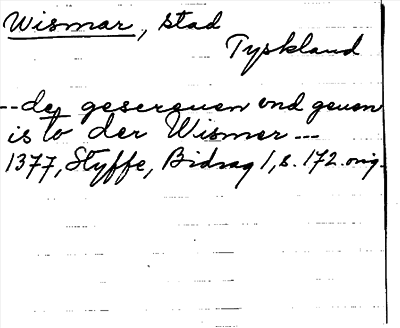 Wismar, stad
Tyskland
--de gesereuen ond geuen
is to der Wismer ---
1377, Styffe, Bidrag 1, s. 172. orig.